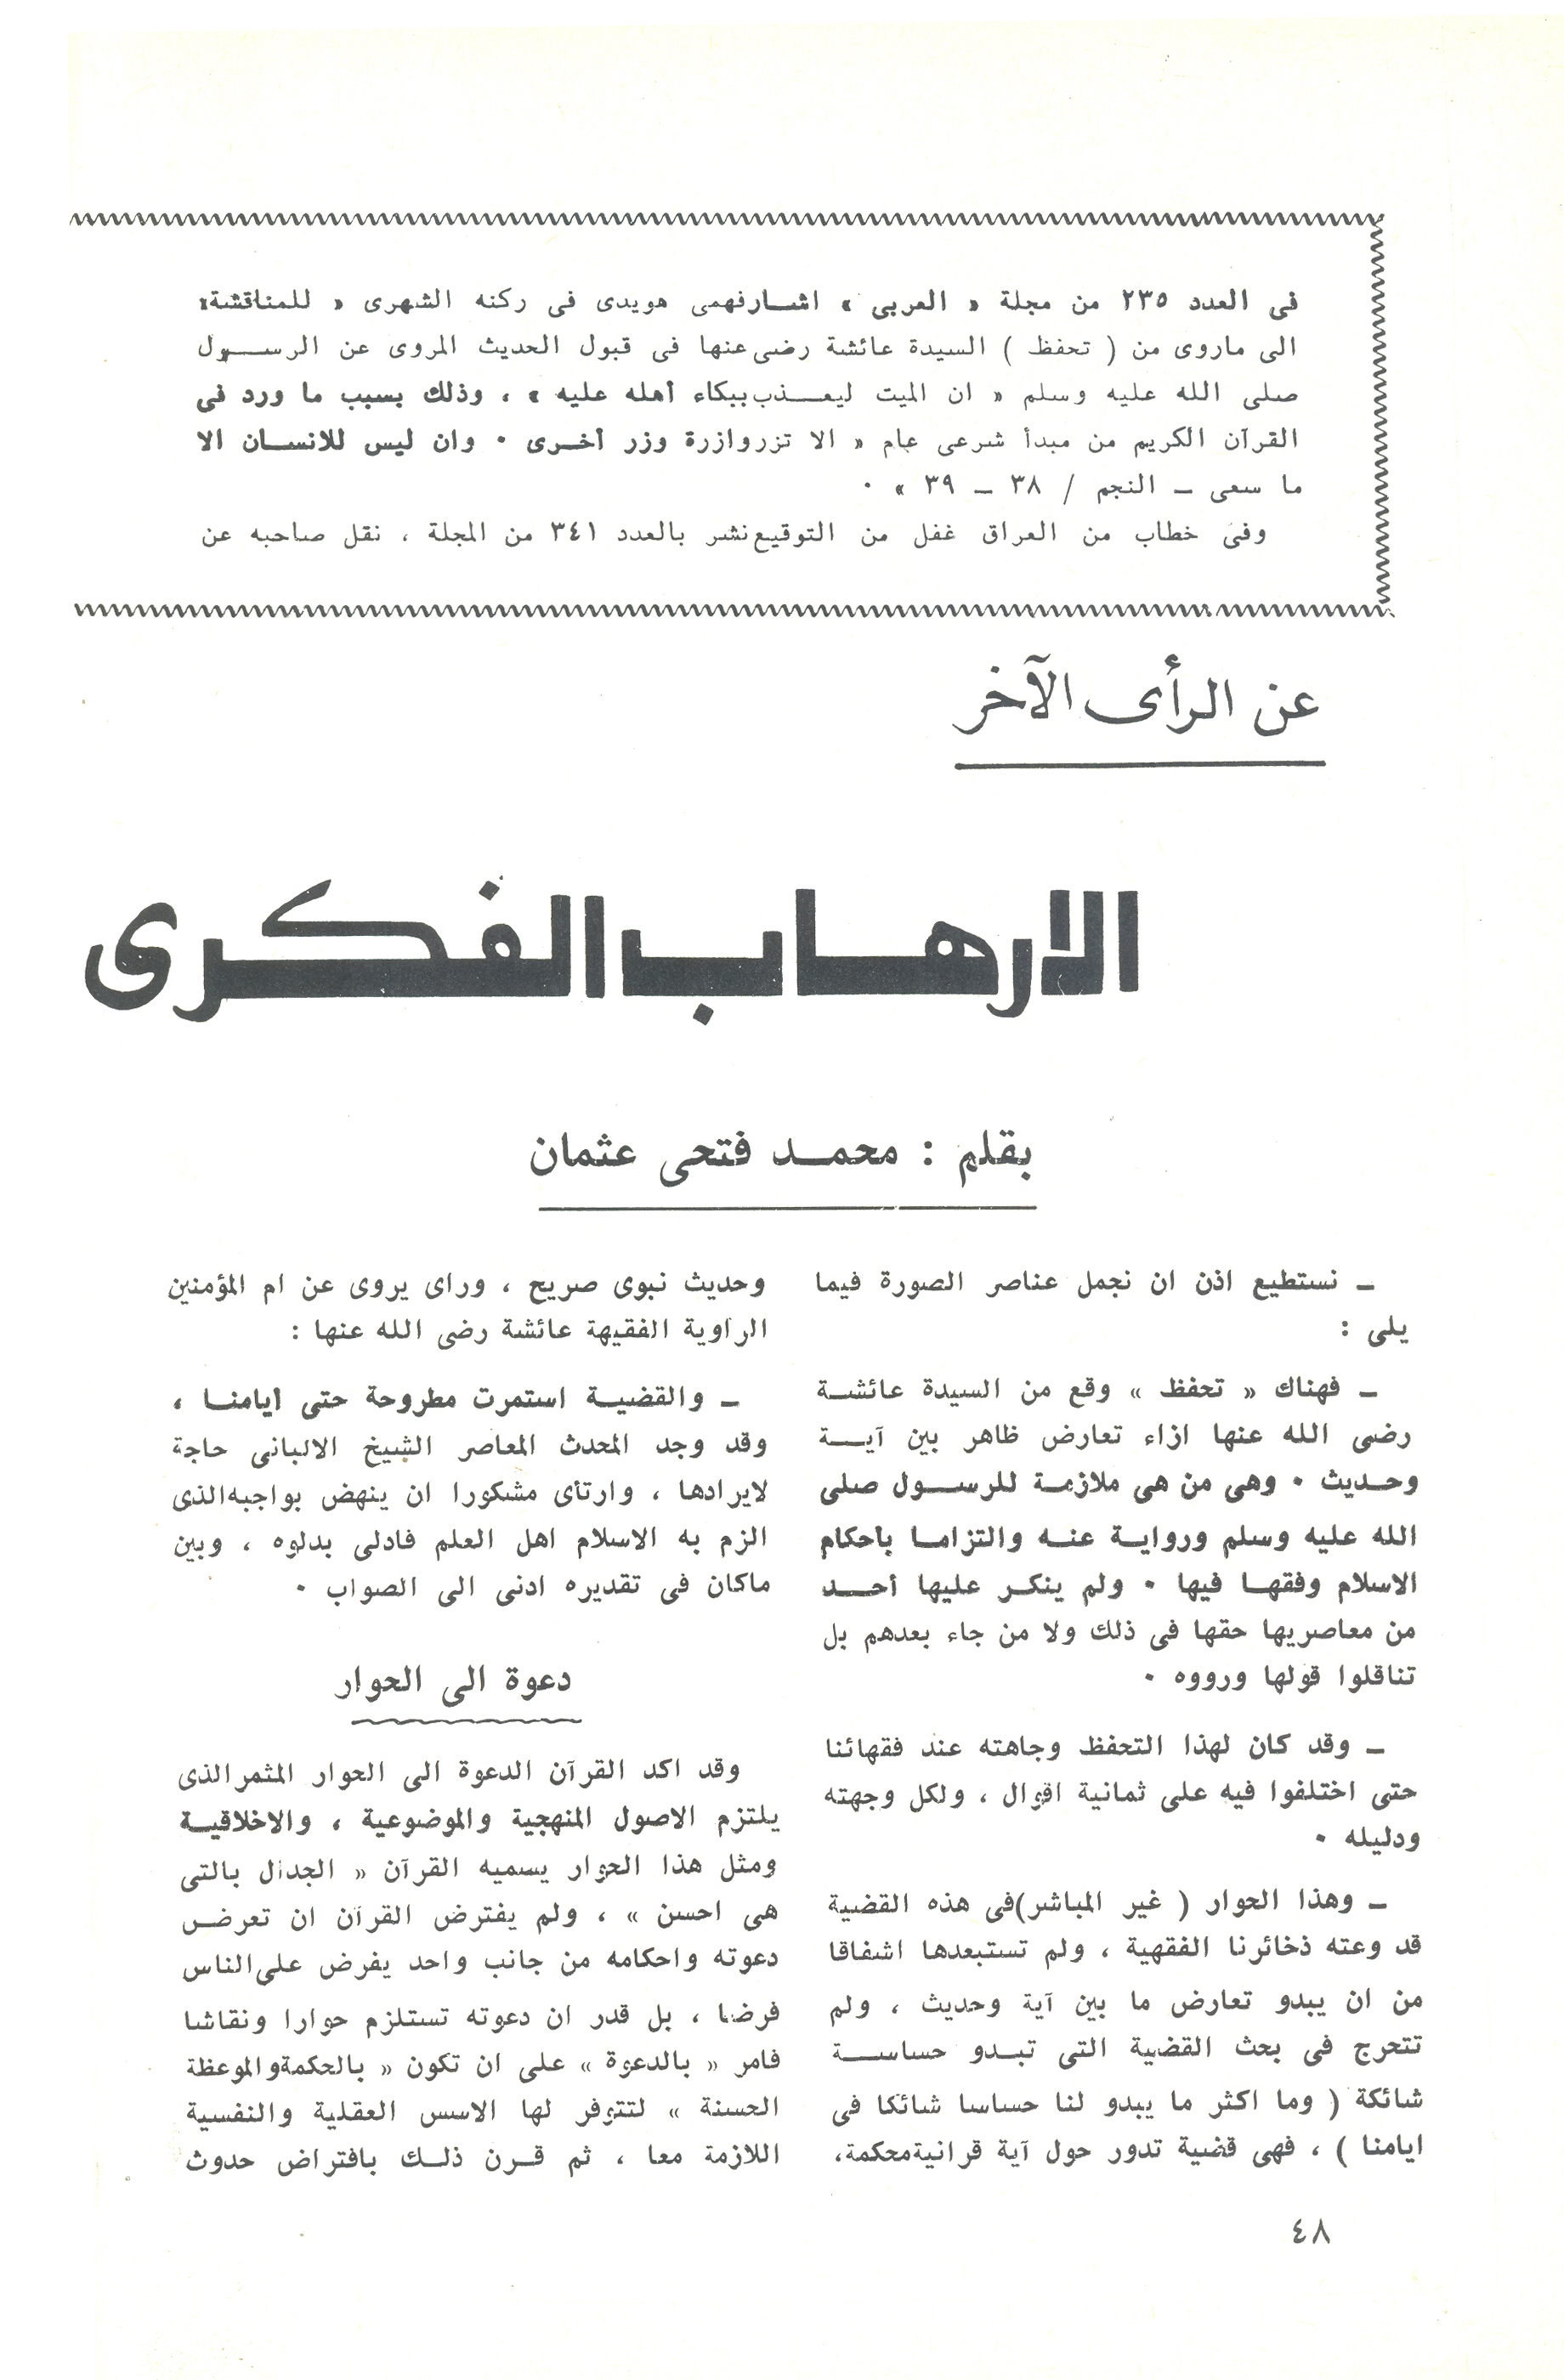 فى العدد ٢٣٥ من مجلة « العربى » اشــارفهمى هويدى فى ركنه الشهرى « للمناقشة»
الى ماروى من ( تحفظ ) السيدة عائشة رضى عنها فى قبول الحديث المروى عن الرســول
صلى الله عليه وسلم « ان الميت ليعــذب ببكاء أهله عليه » ، وذلك بسبب ما ورد فى
القرآن الكريم من مبدأ شرعى عام « الا تزر وازرة وزر أخــرى ٠ وان ليس للانســان الا
ما سعى ـ النجم / ٣٨ ـ ٣٩ » ٠
وفى خطاب من العراق غفل من التوقيع نشر بالعدد ٣٤١ من المجلة ، نقل صاحبه عن
عن الرأى الآخر
الارهاب الفكرى
بقلم : محمــد فتحى عثمان
ـ نستطيع اذن ان نجمل عناصر الصورة فيما
يلى :
ـ فهناك « تحفظ » وقع من السيدة عائشــة
رضى الله عنها ازاء تعارض ظاهر بين آيــة
وحــديث ٠ وهى من هى ملازمــة للرســول صلى
الله عليه وسلم وروايــة عنــه والتزامــا باحكام
الاسلام وفقهــا فيها ٠ ولم ينكــر عليها أحــد
من معاصريها حقها فى ذلك ولا من جاء بعدهم بل
تناقلوا قولها ورووه ٠
ـ وقد كان لهذا التحفظ وجاهته عند فقهائنا
حتى اختلفوا فيه على ثمانية اقوال ، ولكل وجهته
ودليله ٠
ـ وهذا الحوار ( غير المباشر)فى هذه القضية
قد وعته ذخائرنا الفقهية ، ولم تستبعدها اشفاقا
من ان يبدو تعارض ما بين آية وحديث ، ولم
تتحرج فى بحث القضية التى تبــدو حساســة
شائكة ( وما اكثر ما يبدو لنا حساسا شائكا فى
ايامنا ) ، فهى قضية تدور حول آية قرانية محكمة،
وحديث نبوى صريح ، وراى يروى عن ام المؤمنين
الراوية الفقيهة عائشة رضى الله عنها :
ـ والقضيــة استمرت مطروحة حتى ايامنــا ،
وقد وجد المحدث المعاصر الشيخ الالبانى حاجة
لايرادها ، وارتأى مشكورا ان ينهض بواجبه الذى
الزم به الاسلام اهل العلم فادلى بدلوه ، وبين
ماكان فى تقديره ادنى الى الصواب ٠
دعوة الى الحوار
وقد اكد القرآن الدعوة الى الحوار المثمر الذى
يلتزم الاصول المنهجية والموضوعية ، والاخلاقيــة
ومثل هذا الحوار يسميه القرآن « الجدال بالتى
هى احسن » ، ولم يفترض القرآن ان تعرض
دعوته واحكامه من جانب واحد يفرض على الناس
فرضا ، بل قدر ان دعوته تستلزم حوارا ونقاشا
فامر « بالدعوة » على ان تكون « بالحكمة والموعظة
الحسنة » لتتوفر لها الاسس العقلية والنفسية
اللازمة معا ، ثم قــرن ذلــك بافتراض حدوث
٤٨